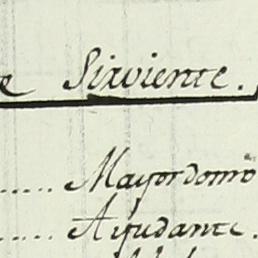 e Sirviente.
..... Mayordomo
..... Ayudante.